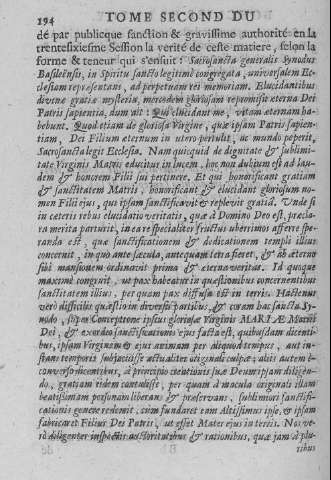 194 TOME SECOND DU
dé par publicque sanction & gravissime authorité en la
trentesixiesme Session la verité de ceste matiere, selon la
forme & teneur qui s'ensuit: Sacrosancta generalis Synodus
Basileensis, in Spiritu sancto legitimè congregata, universalem Ec-
clesiam repræsentans, ad perpetuam rei memoriam. Elucidantibus
divinæ gratiæ mysteria, mercedem gloriosam repromisit æterna Dei
Patris sapientia, dum ait: Qui elucidant me, vitam æternam ha-
bebunt. Quod etiam de gloriosa Virgine, quæ ipsam Patris sapien-
tiam, Dei Filium æternum in utero pertulit, ac mundo peperit,
Sacrosancta legit Ecclesia. Nam quicquid de dignitate & sublimi-
tate Virginis Matris educitur in lucem, hoc non dubium est ad lau-
dem & honorem Filii sui pertinere. Et qui honorificant gratiam
& sanctitatem Matris, honorificant & elucidant gloriosum no-
men Filii ejus, qui ipsam sanctificavit & replevit gratiâ. Unde si
in ceteris rebus elucidatio veritatis, quæ à Domino Deo est, præcla-
ra merita parturit, in ea re specialiter fructus uberrimos afferre spe-
randa est, quæ sanctificationem & dedicationem templi illius
concernit, in quo ante sæcula, antequam terra fieret, & ab æterno
sibi mansionem ordinavit prima & æterna veritas. Id quoque
maximè congruit, ut pax habeatur in quæstionibus concernentibus
sanctitatem illius, per quam pax diffusa est in terris. Hactenus
verò difficilis quæstio in diversis partibus, & coram hac sancta Sy-
nodo, super Conceptione ipsius gloriosæ Virginis MARIÆ Matris
Dei, & exordio sanctificationis ejus facta est, quibusdam dicenti-
bus, ipsam Virginem & ejus animam per aliquod tempus, aut in-
stans temporis subjacuisse actualiter originali culpæ; aliis autem è
converso dicentibus, à principio creationis suæ Deum ipsam diligen-
do, gratiam eidem contulisse, per quam à macula originali illam
beatissimam personam liberans & præservans, sublimiori sanctifi-
cationis genere redemit, cum fundaret eam Altissimus ipse, & ipsam
fabricaret Filius Dei Patris, ut esset Mater ejus in terris. Nos ve-
rò diligenter inspectis auctoritatibus & rationibus, quæ jam à plu-
ribus